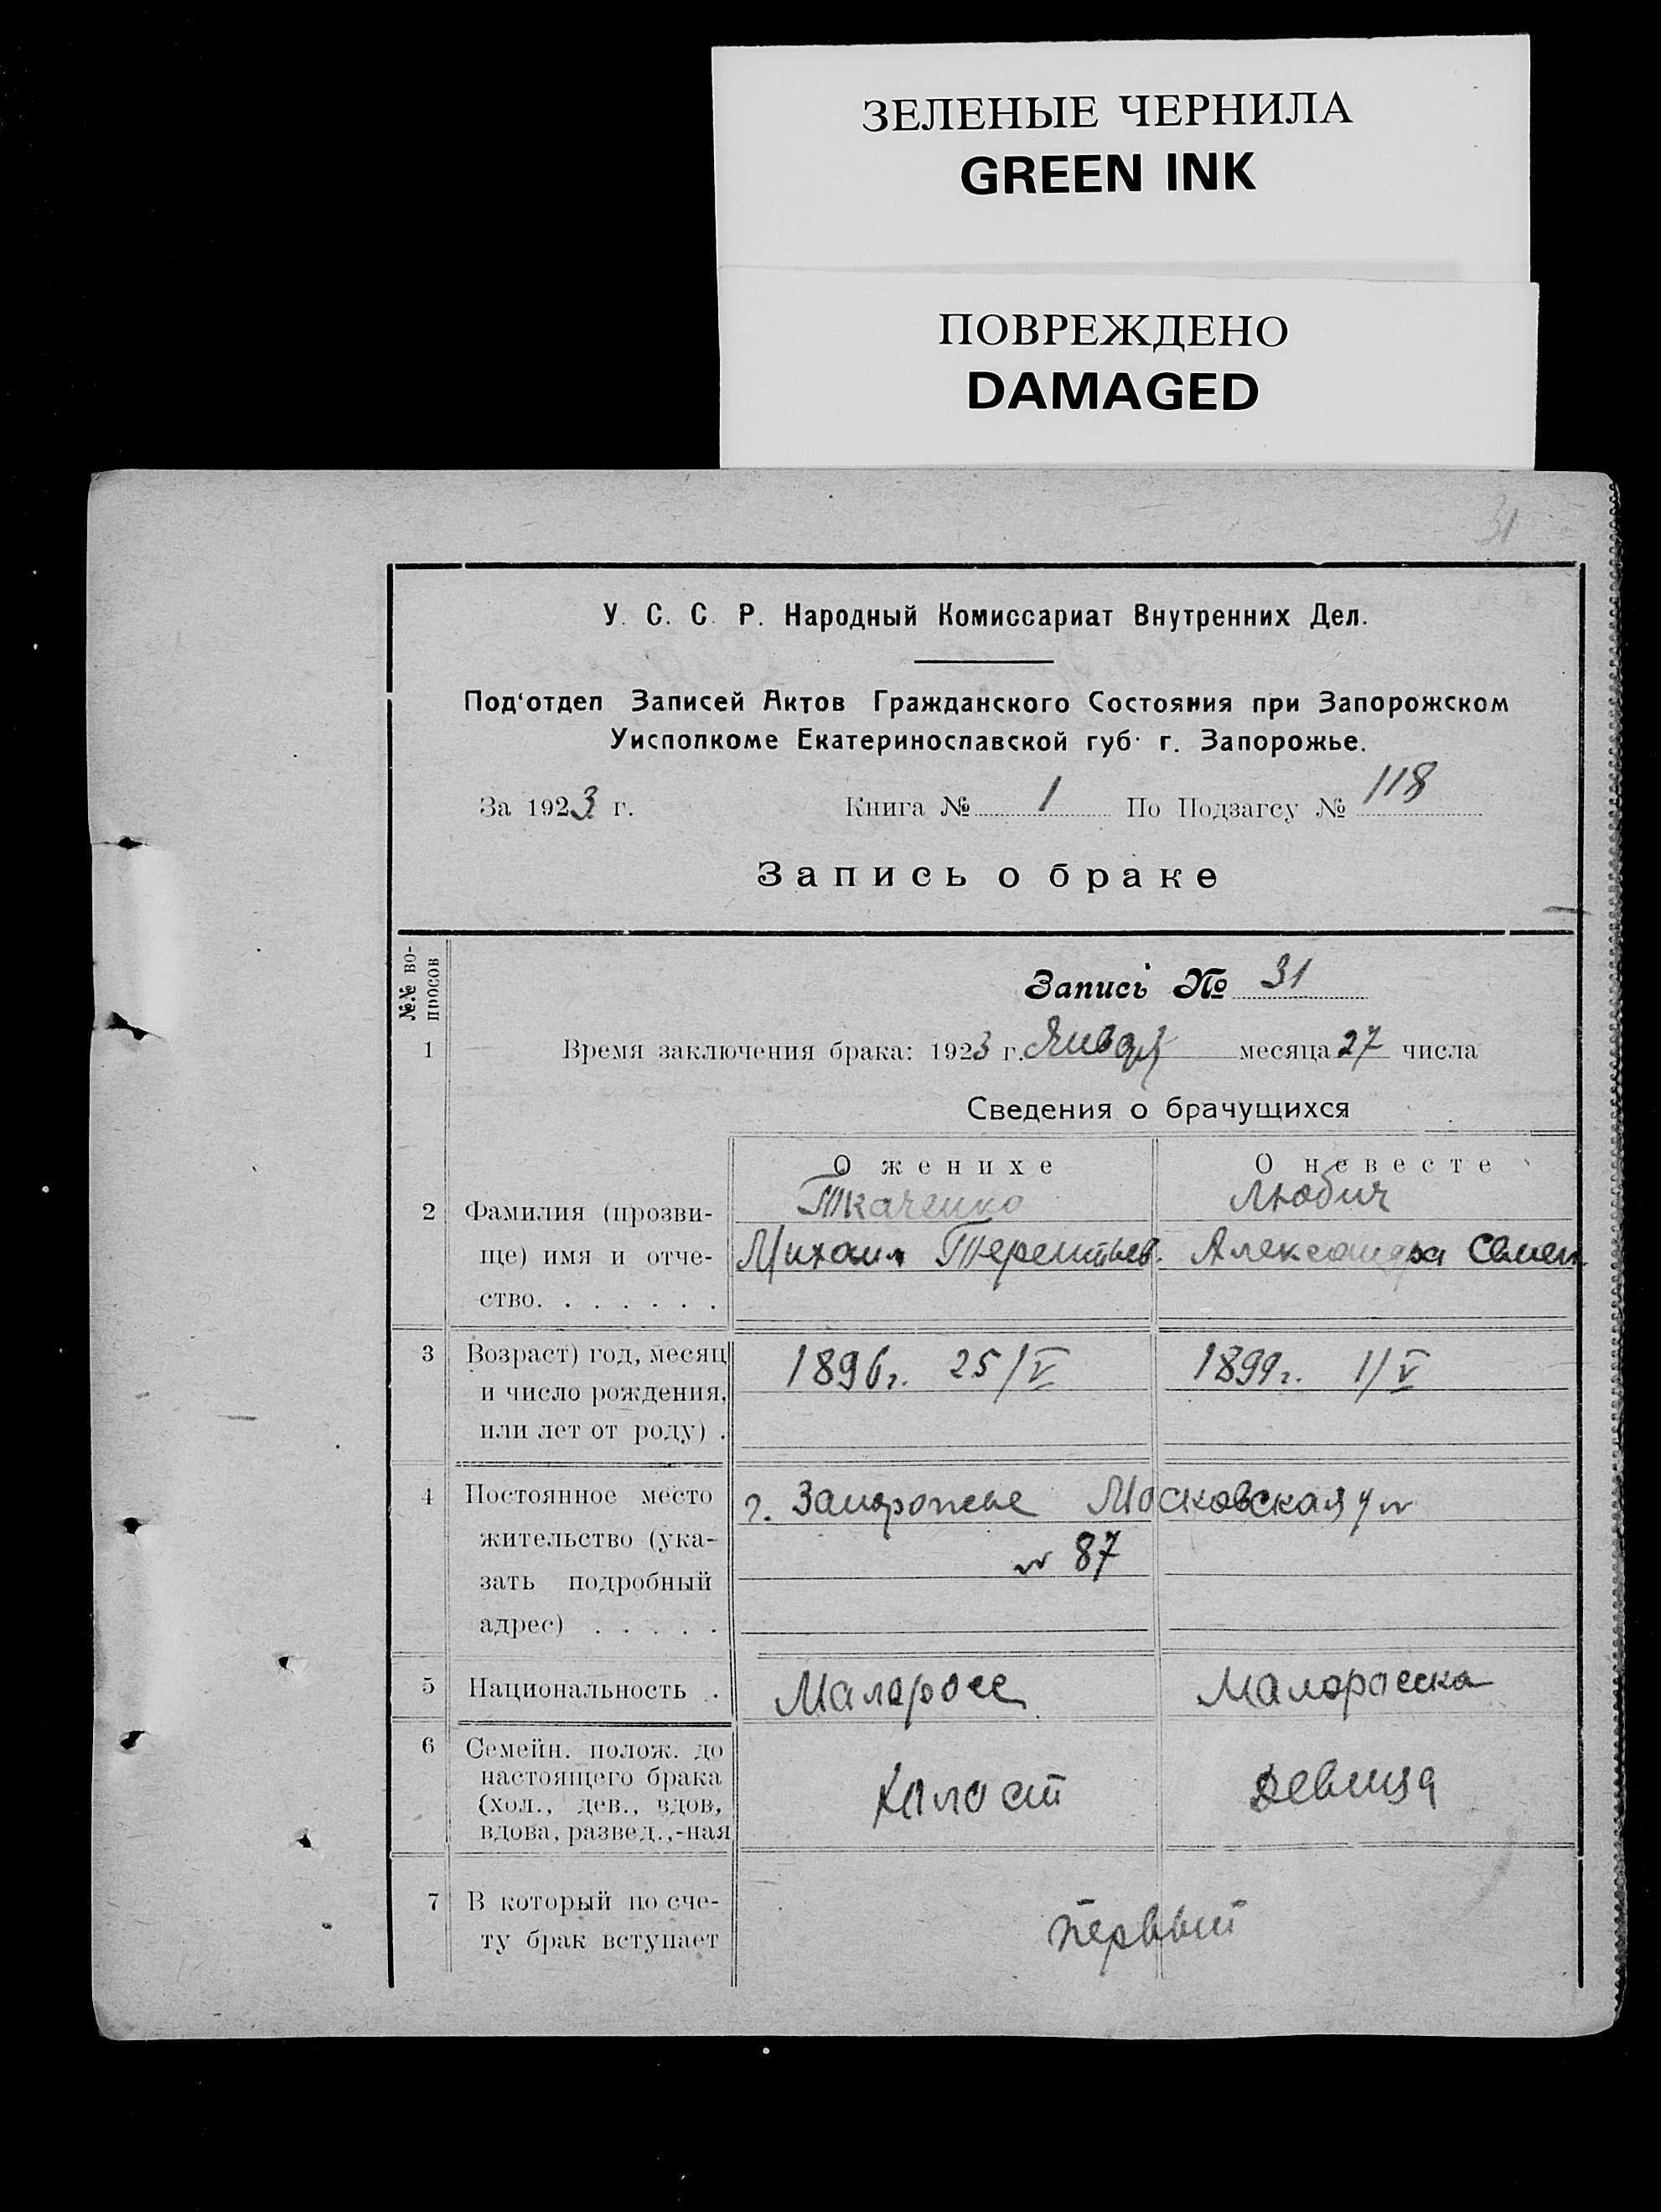 ЗЕЛЕНЫЕ ЧЕРНИЛА
GREEN INK
ПОВРЕЖДЕНО
DAMAGED
31
У. С. С. Р. Народный Комиссариат Внутренних Дел.
Под'отдел Записей Актов Гражданского Состояния при Запорожском
Уисполкоме Екатеринославской губ. г. Запорожье.
За 1923 г. Книга № 1 По Подзагсу № 118
Запись о браке
№№ во-
просов
Запись № 31
1 Время заключения брака: 1923 г. Январ месяца 27 числа
Сведения о брачущихся
О женихе О невесте
Ткаченко Любич
2 Фамилия (прозви-
ще) имя и отче- Михаил Терентьев. Александра Семен.
ство. . . . . . .
3 Возраст) год, месяц 1896г. 25/V 1899г. 1/V
и число рождения,
или лет от роду) .
4 Постоянное место г. Запорожье Московская ул
жительство (ука- № 87
зать подробный
адрес) . . . . .
5 Национальность . Малоросс Малоросска
6 Семейн. полож. до
настоящего брака Холост Девица
(хол., дев., вдов,
вдова, развед.,-ная
7 В который по сче- первый
ту брак вступает